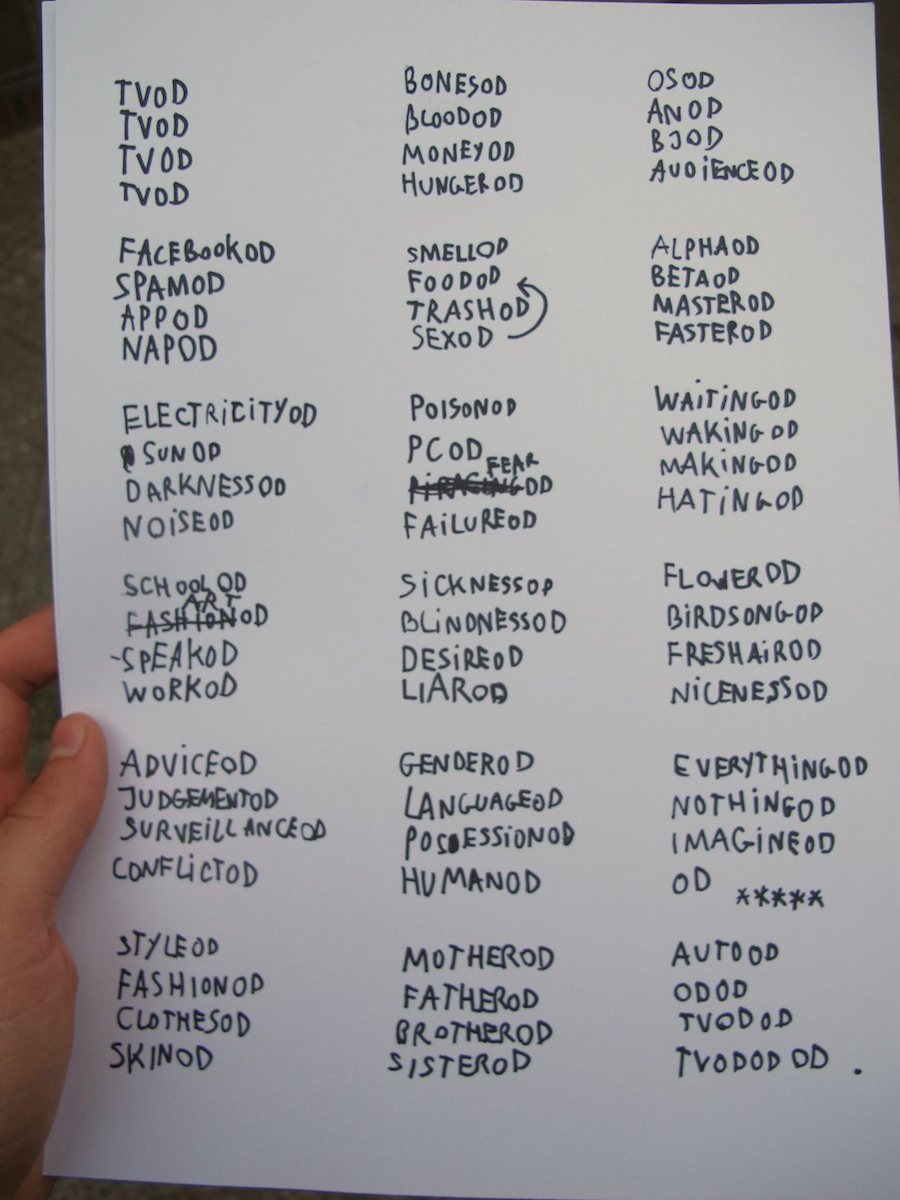 TVOD
TVOD
TVOD
TVOD
FACEBOOKOD
SPAMOD
APPOD
NAPOD
ELECTRICITYOD
SUNOD
DARKNESSOD
NOISEOD
SCHOOLOD
ART
FASHIONOD
SPEAKOD
WORKOD
ADVICEOD
JUDGEMENTOD
SURVEILLANCEOD
CONFLICTOD
STYLEOD
FASHIONOD
CLOTHESOD
SKINOD
BONESOD
BLOODOD
MONEYOD
HUNGEROD
SMELLOD
FOODOD
TRASHOD
SEXOD
POISONOD
PCOD
FEAR
OD
FAILUREOD
SICKNESSOD
BLINDNESSOD
DESIREOD
LIAROD
GENDEROD
LANGUAGEOD
POSSESSIONOD
HUMANOD
MOTHEROD
FATHEROD
BROTHEROD
SISTEROD
OSOD
ANOD
BJOD
AUDIENCEOD
ALPHAOD
BETAOD
MASTEROD
FASTEROD
WAITINGOD
WAKINGOD
MAKINGOD
HATINGOD
FLOWEROD
BIRDSONGOD
FRESHAIROD
NICENESSOD
EVERYTHINGOD
NOTHINGOD
IMAGINEOD
OD *****
AUTOOD
ODOD
TVODOD
TVODODOD .